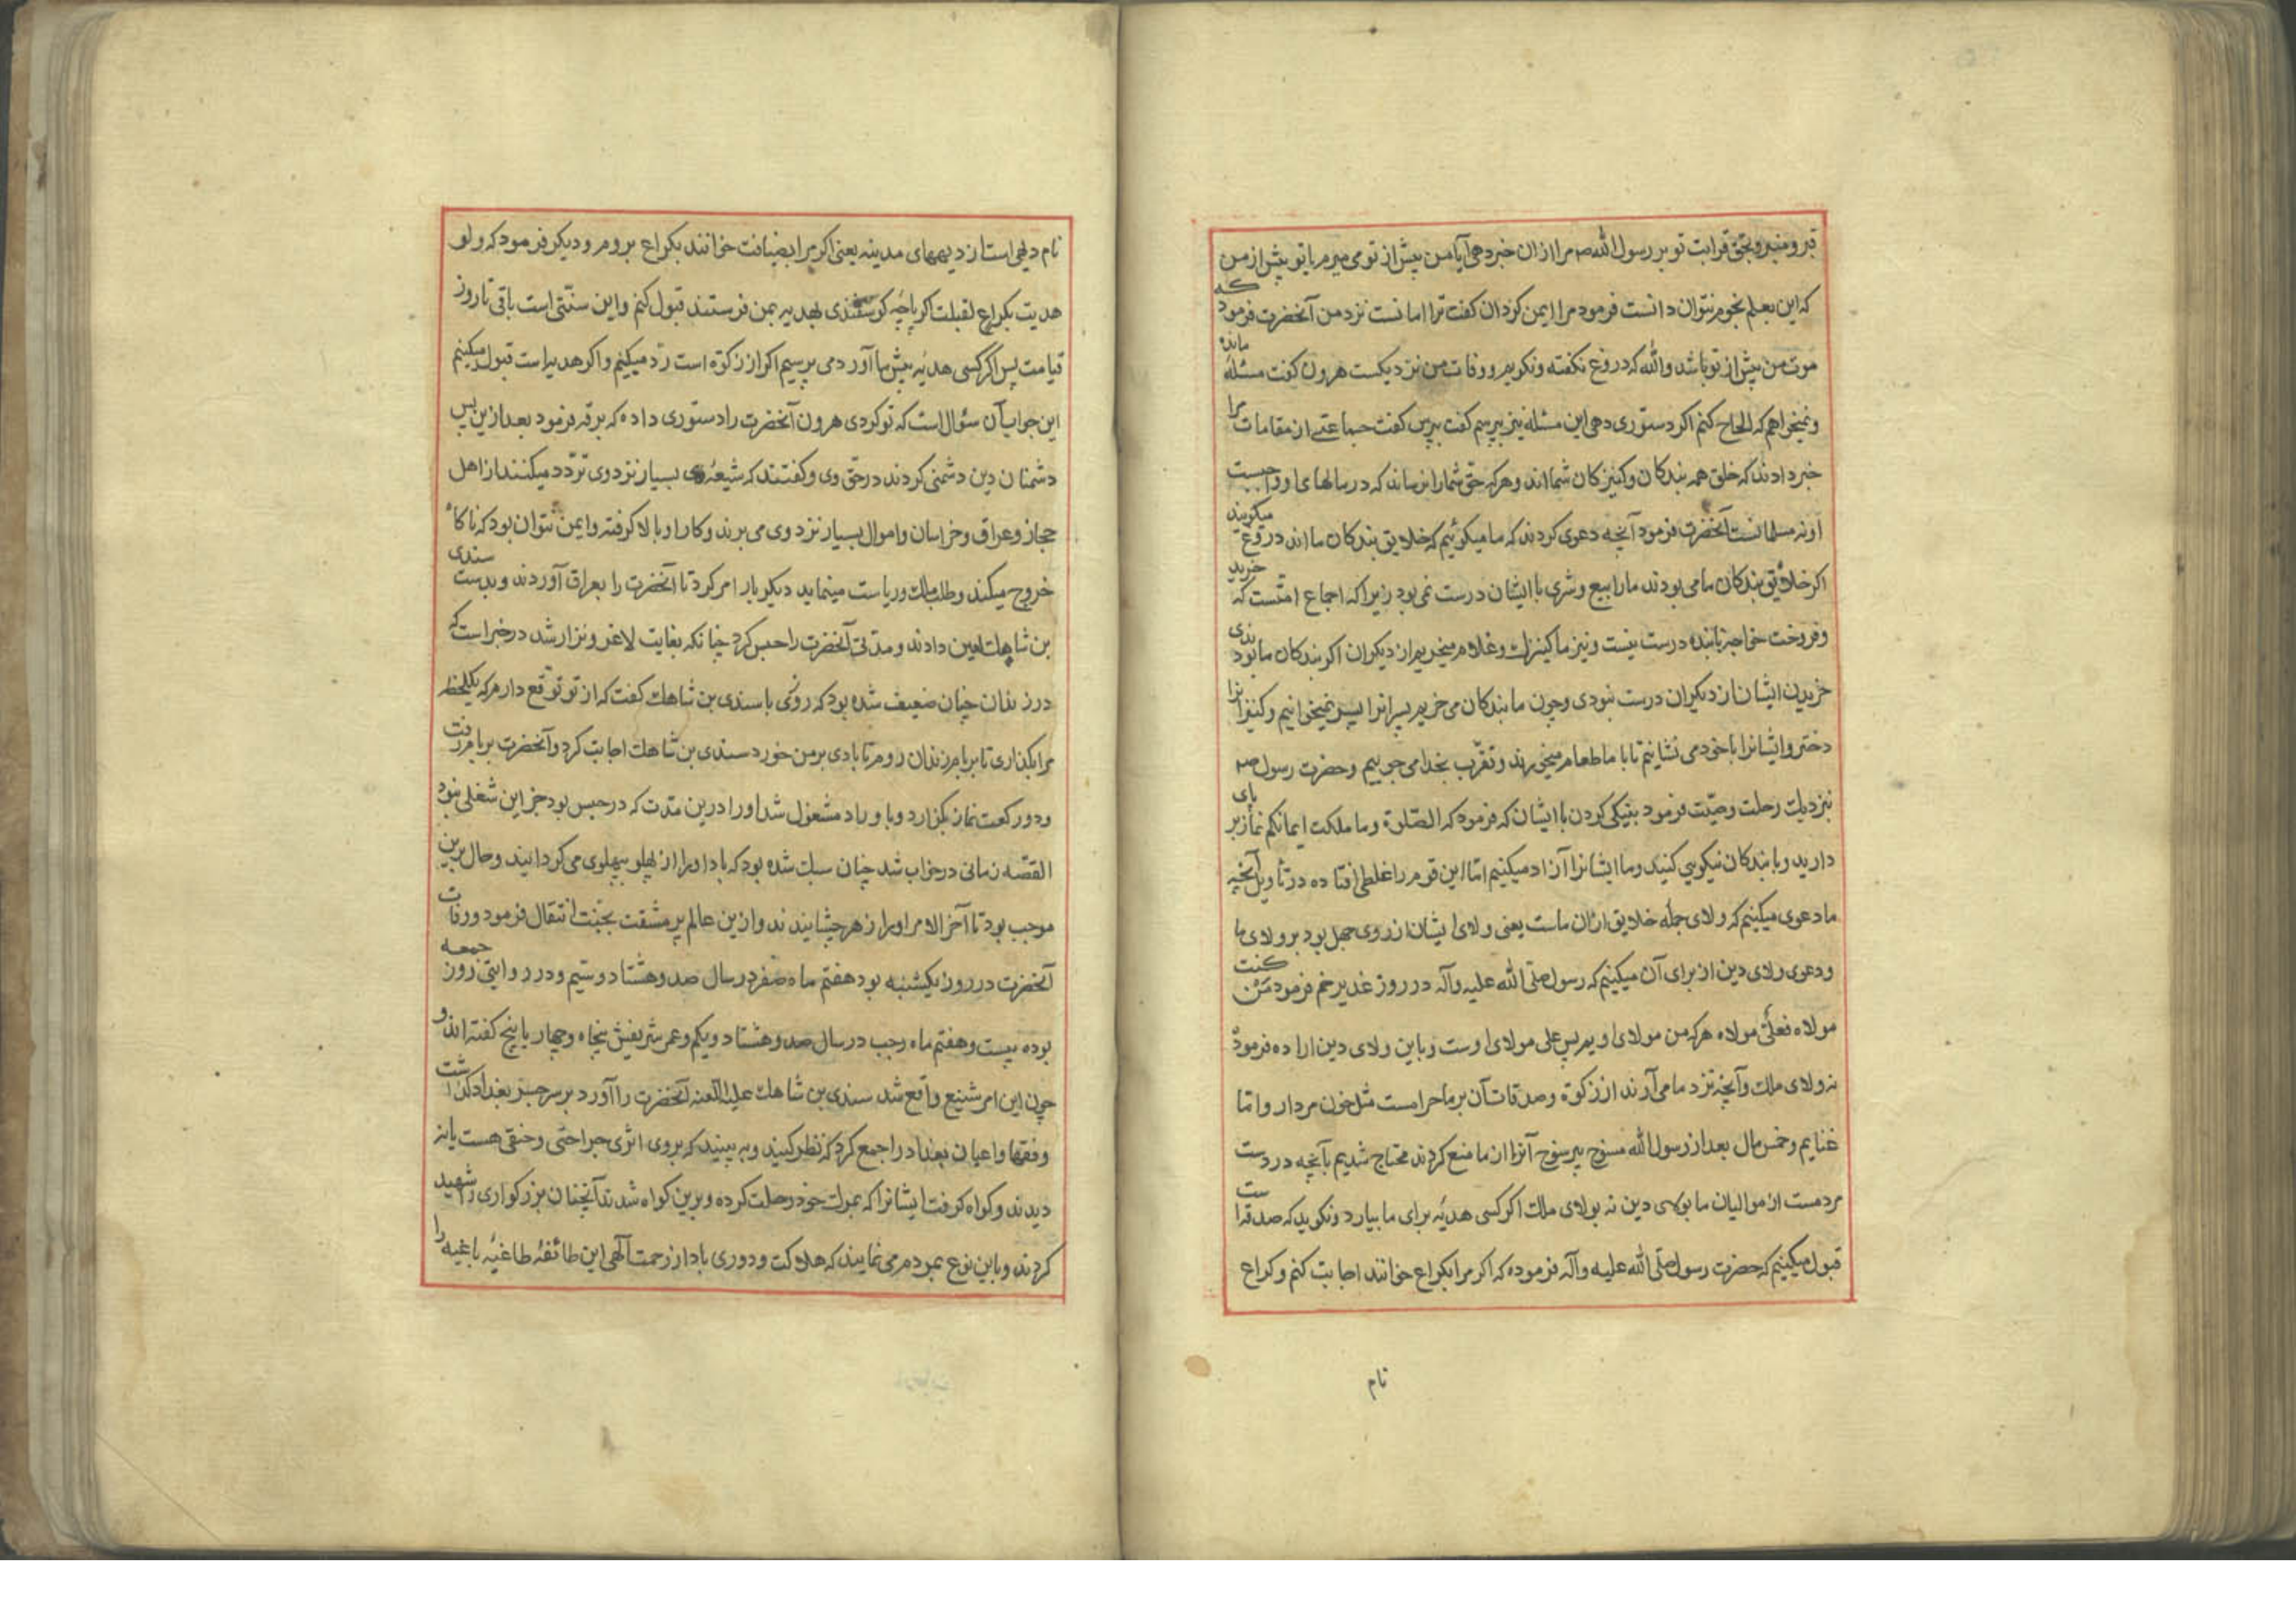 قبر و منبر و بحق قرابت تو بر رسول الله صم مرا ازان خبر دهی آیا من پیش از تو می میرم یا تو پیش از من
که این بعلم نجوم نتوان دانست فرمود مرا ایمن کردان کفت ترا امانست نزد من آنحضرت فرمود که
موت من پیش از تو باشد والله که دروغ نکفته و نکویم و وفات من نزدیکست هرون کفت مسئله مانده
و نمیخواهم که الحاح کنم اکر دستوری دهی این مسئله نیز بپرسم کفت بپرس کفت جماعتی از مقامات مرا
خبر دادند که خلق همه بندکان و کنیزکان شما اند و هرکه حق شما را نرساند که در مالهای او واجبست
او نه مسلمانست آنحضرت فرمود آنچه دعوی کردند که ما میکوئیم که خلایق بندکان ما اند دروغ میکویند
اکر خلایق بندکان ما می بودند ما را بیع و شری با ایشان درست نمی بود زیرا که اجماع امتست که خرید
و فروخت خواجه با بنده درست نیست و نیز ما کنیزک و غلام میخریم از دیکران اکر بندکان ما بودندی
خریدن ایشان از دیکران درست نبودی و چون ما بندکان می خریم پسرانرا پسر میخوانیم و کنیزانرا
دختر و ایشانرا با خود می نشانیم تا با ما طعام میخورند و تقرب بخدا می جوییم و حضرت رسول صم
نزدیک رحلت وصیت فرمود بنیکی کردن با ایشان که فرمود که الصلوة و ما ملکت ایمانکم نماز برپای
دارید و با بندکان نیکویی کنید و ما ایشانرا آزاد میکنیم اما این قوم را غلطی افتاده در تاویل آنچه
ما دعوی میکنیم که ولای جمله خلایق ازان ماست یعنی ولای ایشان از روی جهل بود بر ولای ما
و دعوی ولای دین از برای آن میکنیم که رسول صلی الله علیه وآله در روز غدیر خم فرمود من کنت
مولاه فعلی مولاه هرکه من مولای اویم پس علی مولای اوست و باین ولای دین اراده فرموده
نه ولای ملک و آنچه نزد ما می آرند از زکوة و صدقات آن بر ما حرامست مثل خون مردار و اما
غنایم و خمس مال بعد از رسول الله آنرا از ما منع کردند محتاج شدیم بآنچه در دست
مردمست از موالیان ما بولای دین نه بولای ملک اکر کسی هدیه برای ما بیارد و نکوید که صدقه است
قبول میکنیم که حضرت رسول صلی الله علیه وآله فرموده که اکر مرا بکراع خوانند اجابت کنم و کراع
نام
نام دیهی است از دیههای مدینه یعنی اکر مرا بضیافت خوانند بکراع بروم و دیکر فرمود که ولو
هدیت بکراع لقبلت اکر پاچه کوسفندی بهدیه بمن فرستند قبول کنم و این سنتی است باقی تا روز
قیامت پس اکر کسی هدیه پیش ما آورد می پرسیم اکر از زکوة است رد میکنیم و اکر هدیه است قبول میکنیم
این جواب آن سئوال است که تو کردی هرون آنحضرت را دستوری داده که برقه فرمود بعد ازین پس
دشمنان دین دشمنی کردند در حق وی و کفتند که شیعه وی بسیار نزد وی تردد میکنند از اهل
حجاز و عراق و خراسان و اموال بسیار نزد وی می برند و کار او بالا کرفته و ایمن نتوان بود که ناکاه
خروج میکند و طلب ملک و ریاست مینماید دیکر بار امر کرد تا آنحضرت را بعراق آوردند و بدست سندی
بن شاهک لعین دادند و مدتی آنحضرت را حبس کرد چنانکه بغایت لاغر و نزار شد در خبر است که
در زندان چنان ضعیف شده بود که روزی با سندی بن شاهک کفت که از تو توقع دارم که یکلحظه
مرا بکذاری تا بر بام زندان روم تا بادی بر من خورد سندی بن شاهک اجابت کرد و آنحضرت بر بام رفت
و دو رکعت نماز بکزارد و با وراد مشغول شد او را درین مدت که در حبس بود جز این شغلی نبود
القصه زمانی در خواب شد چنان سبک شده بود که باد او را از پهلو بپهلوی می کردانید و حال برین
موجب بود تا آخر الامر او را زهر چشانیدند و ازین عالم پر مشقت بجنت انتقال فرمود و وفات
آنحضرت در روز یکشنبه بود هفتم ماه صفر در سال صد و هشتاد و سیم و در روایتی روز جمعه
بوده بیست و هفتم ماه رجب در سال صد و هشتاد و یکم و عمر شریفش پنجاه و چهار یا پنج کفته اند و
چون این امر شنیع واقع شد سندی بن شاهک علیه اللعنه آنحضرت را آورد بر سر جسر بغداد کذاشت
و فقها و اعیان بغداد را جمع کرد که نظر کنید و به بینید که بر وی اثری جراحتی و خنقی هست یا نه
دیدند و کواه کرفت ایشانرا که بموت خود رحلت کرده و برین کواه شدند آنچنان بزرکواری را شهید
کردند و باین نوع بمردم می نمایند که هلاکت و دوری باد از رحمت آلهی این طائفه طاغیه باغیه را